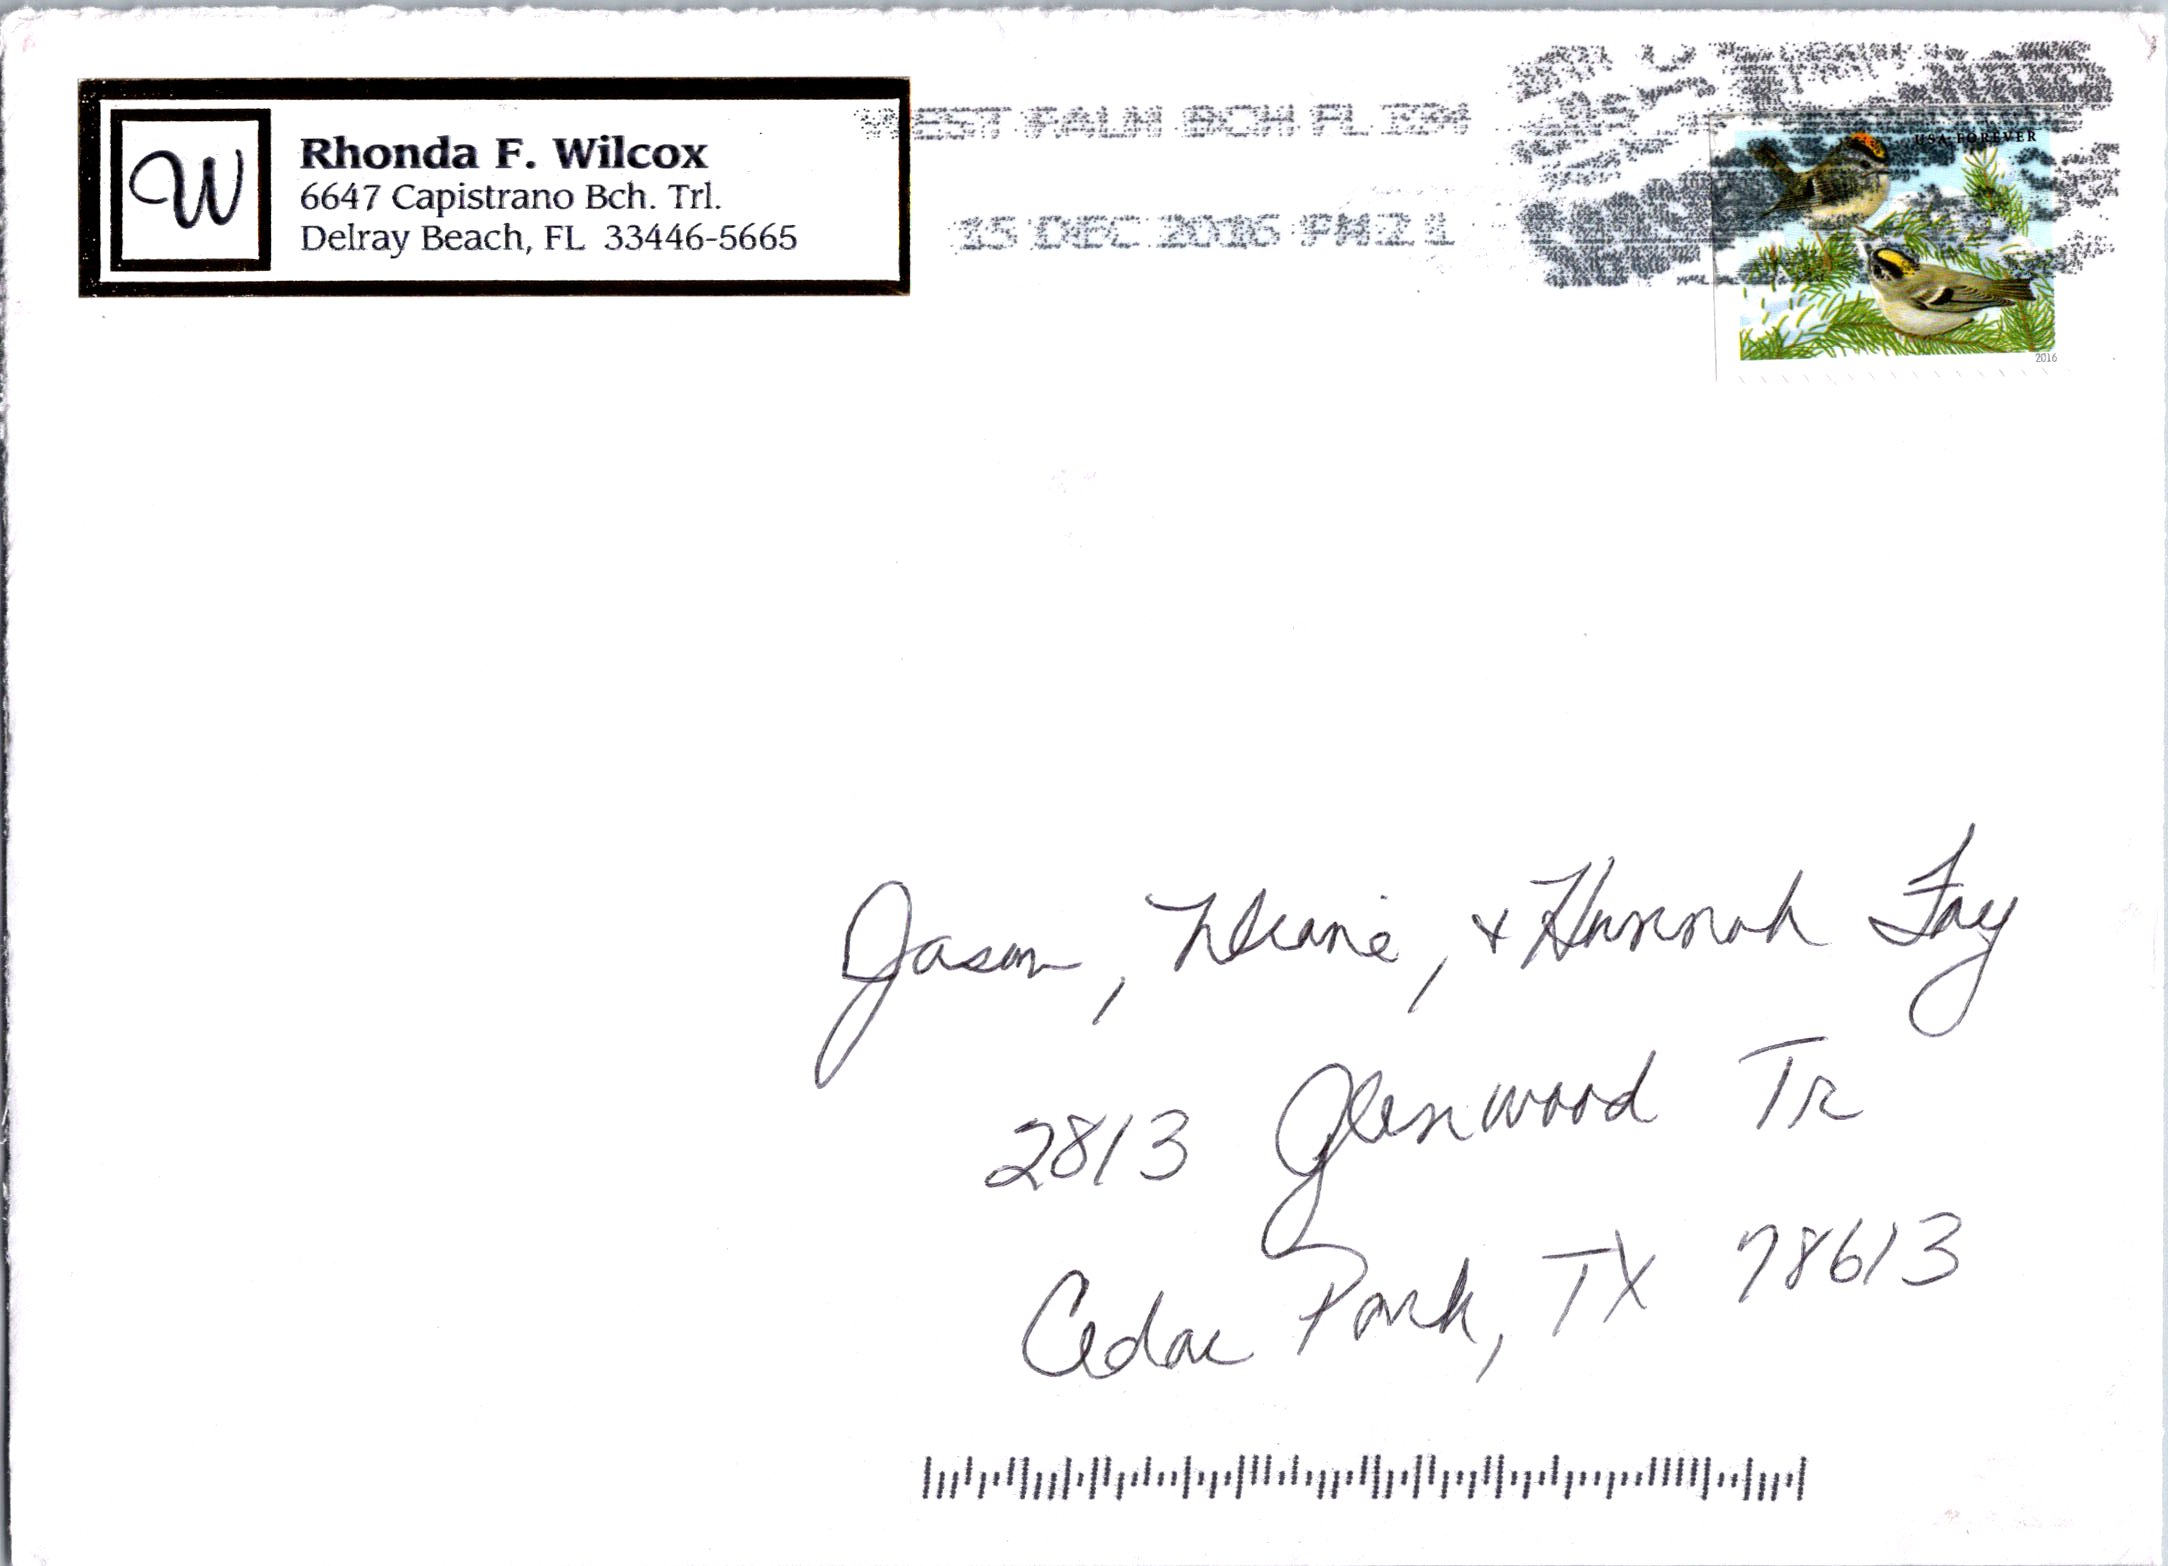 W
Rhonda F. Wilcox
6647 Capistrano Bch. Trl.
Delray Beach, FL 33446-5665
WEST PALM BCH FL 334
15 DEC 2016 PM 2 L
USA FOREVER
2016
Jason, & Hannah Fay
2813 Glenwood Tr
Cedar Park, TX 78613